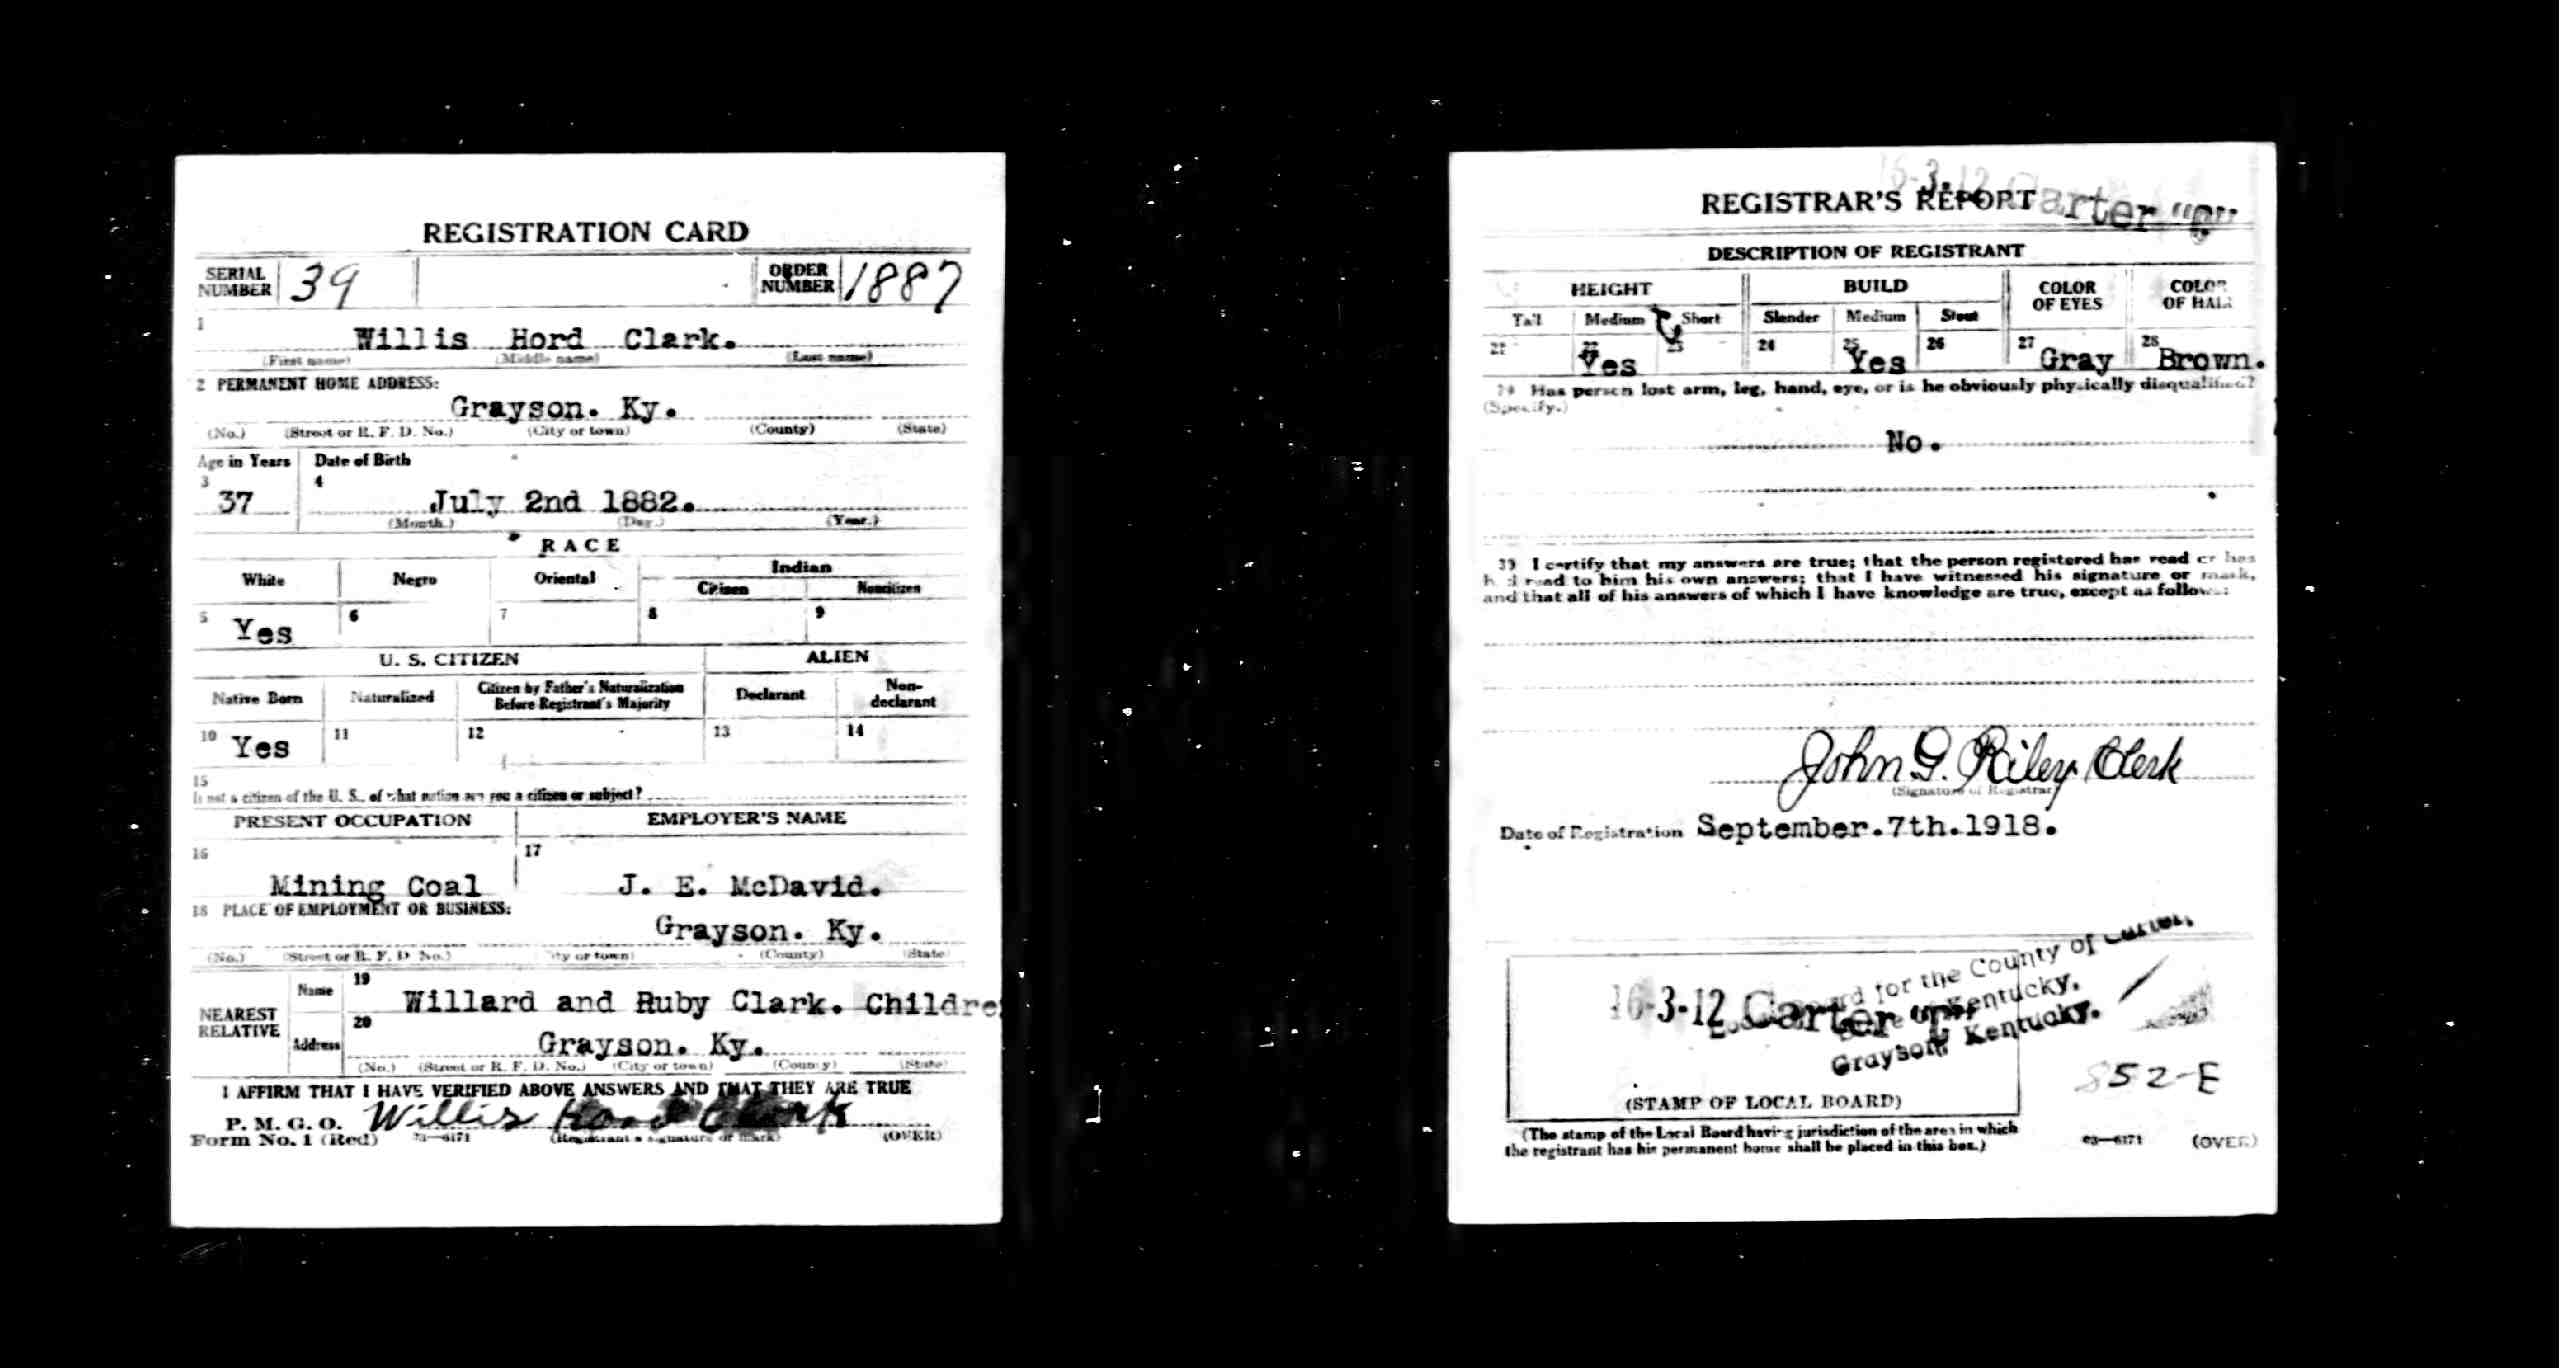 REGISTRATION CARD
SERIAL NUMBER 39 ORDER NUMBER 1887
1 Willis Hord Clark.
(First name) (Middle name) (Last name)
2 PERMANENT HOME ADDRESS:
Grayson. Ky.
(No.) (Street or R. F. D. No.) (City or town) (County) (State)
Age in Years Date of Birth
3 4
37 July 2nd 1882.
(Month.) (Day.) (Year.)
RACE
White Negro Oriental Indian
Citizen Noncitizen
5 Yes 6 7 8 9
U. S. CITIZEN ALIEN
Native Born Naturalized Citizen by Father's Naturalization Before Registrant's Majority Declarant Non-declarant
10 Yes 11 12 13 14
15
If not a citizen of the U. S., of what nation are you a citizen or subject?
PRESENT OCCUPATION EMPLOYER'S NAME
16 17
Mining Coal J. E. McDavid.
18 PLACE OF EMPLOYMENT OR BUSINESS:
Grayson. Ky.
(No.) (Street or R. F. D. No.) (City or town) (County) (State)
NEAREST RELATIVE
Name 19 Willard and Ruby Clark. Childre
Address 20 Grayson. Ky.
(No.) (Street or R. F. D. No.) (City or town) (County) (State)
I AFFIRM THAT I HAVE VERIFIED ABOVE ANSWERS AND THAT THEY ARE TRUE
P. M. G. O.
Form No. 1 (Red) Willis Hord Clark
(Registrant's signature or mark) (OVER)
16-3-12 Carter "C"
REGISTRAR'S REPORT
DESCRIPTION OF REGISTRANT
HEIGHT BUILD COLOR OF EYES COLOR OF HAIR
Tall Medium Short Slender Medium Stout
21 22 Yes 23 24 25 Yes 26 27 Gray 28 Brown.
29 Has person lost arm, leg, hand, eye, or is he obviously physically disqualified?
(Specify.)
No.
30 I certify that my answers are true; that the person registered has read or has
had read to him his own answers; that I have witnessed his signature or mark,
and that all of his answers of which I have knowledge are true, except as follows:
John G. Riley Clerk
(Signature of Registrar)
Date of Registration September.7th.1918.
for the County of Carter,
Kentucky.
16-3-12 Carter
Grayson, Kentucky.
852-E
(STAMP OF LOCAL BOARD)
(The stamp of the Local Board having jurisdiction of the area in which
the registrant has his permanent home shall be placed in this box.)
03—6171 (OVER)